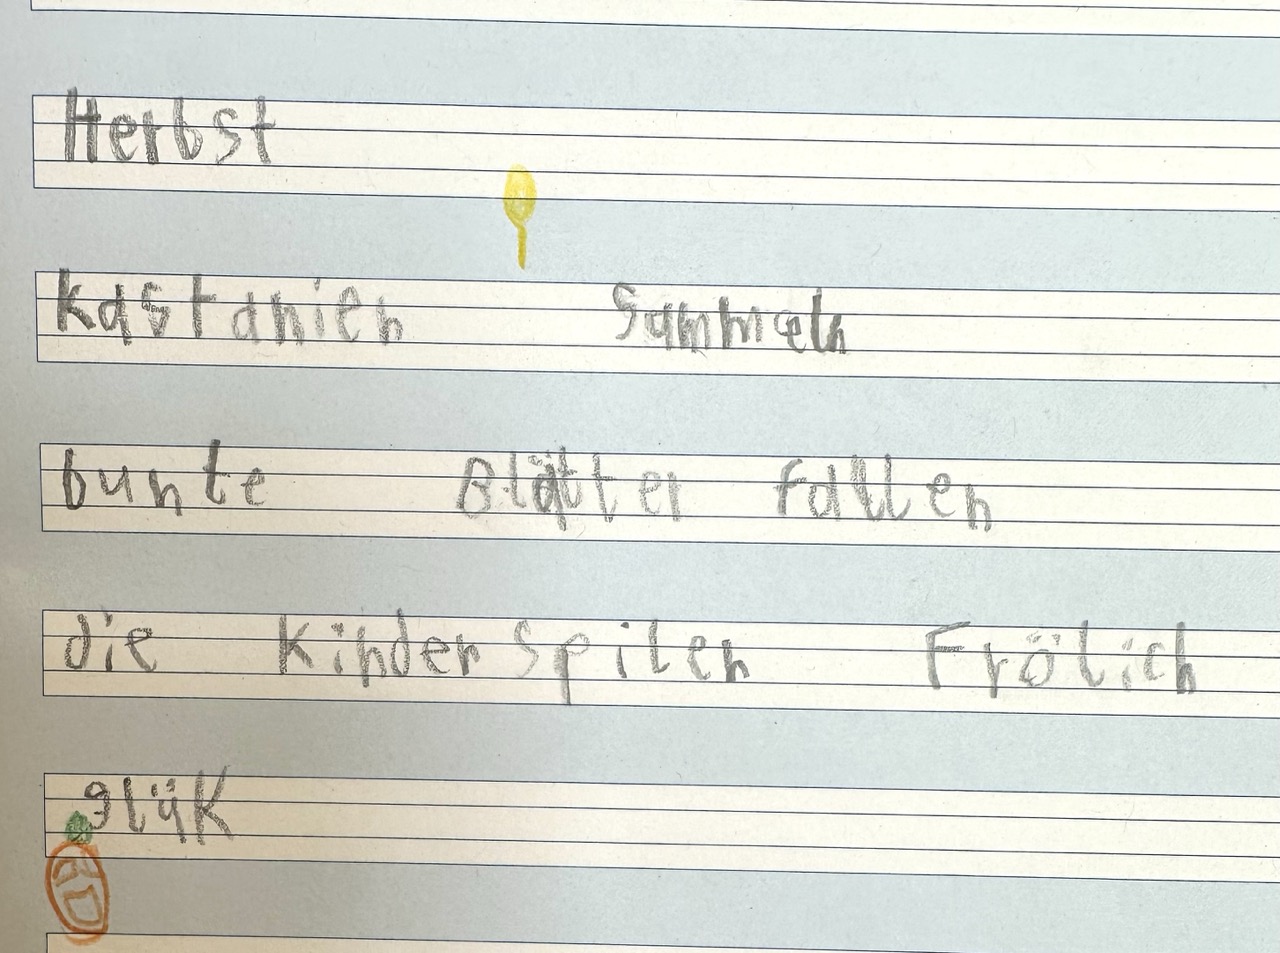 Herbst
kastanien Sammeln
bunte Blätter fallen
die Kinder Spilen Frölich
glük